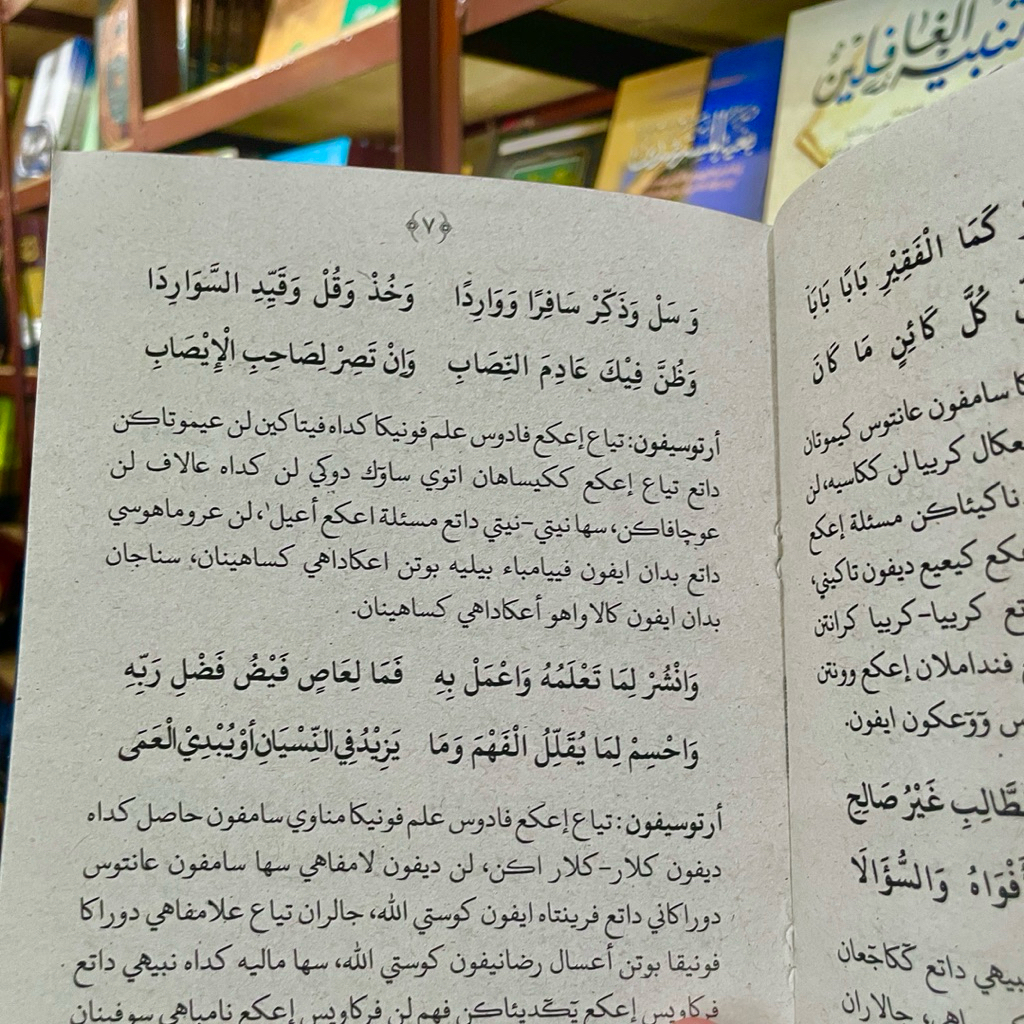 تنبيه الغافلين
بغية المسترشدين
﴿٧﴾
وَ سَلْ وَذَكِّرْ سَافِرًا وَوَارِدًا وَخُذْ وَقُلْ وَقَيِّدِ السَّوَارِدَا
وَظُنَّ فِيْكَ عَادِمَ النِّصَابِ وَاِنْ تَصِرْ لِصَاحِبِ الْاِيْصَابِ
أرتوسيفون: تياع إعكع فادوس علم فونيكا كداه فيتاكين لن عيموتاكن
داتع تياع إعكع ككيساهان اتوي ساوٓك دوكي لن كداه عالاف لن
عوچافاكن، سها نيتي-نيتي داتع مسئلة اعكع أعيل٢، لن عروماهوسي
داتع بدان ايفون فييامباء بيليه بوتن اعكاداهي كساهينان، سناجان
بدان ايفون كالاواهو أعكاداهي كساهينان.
وَانْشُرْ لِمَا تَعْلَمُهُ وَاعْمَلْ بِهِ فَمَا لِعَاصٍ فَيْضُ فَضْلِ رَبِّهِ
وَاحْسِمْ لِمَا يُقَلِّلُ الْفَهْمَ وَمَا يَزِيْدُ فِي النِّسْيَانِ أَوْ يُبْدِيْ الْعَمَى
أرتوسيفون: تياع إعكع فادوس علم فونيكا مناوي سامفون حاصل كداه
ديفون كلار-كلار اكن، لن ديفون لامفاهي سها سامفون عانتوس
دوراكاني داتع فرينتاه ايفون كوستي الله، جالران تياع علامفاهي دوراكا
فونيقا بوتن أعسال رضانيفون كوستي الله، سها ماليه كداه نبيهي داتع
فركاويس إعكع يڬديئاكن فهم لن فركاويس إعكع نامباهي سوفينان
كَمَا الْفَقِيْرِ بَابًا بَابَا
كُلَّ كَائِنٍ مَا كَانَ
سامفون عانتوس كيموتان
كرييا لن ككاسيه، لن
ناكيئاكن مسئلة إعكع
كيعيع ديفون تاكيني،
كرييا-كرييا كرانتن
فنداملان إعكع وونتن
وٓوٓعكون ايفون.
غَيْرُ صَالِحٍ
وَالسُّؤَالَا
نبيهي داتع
جالاران